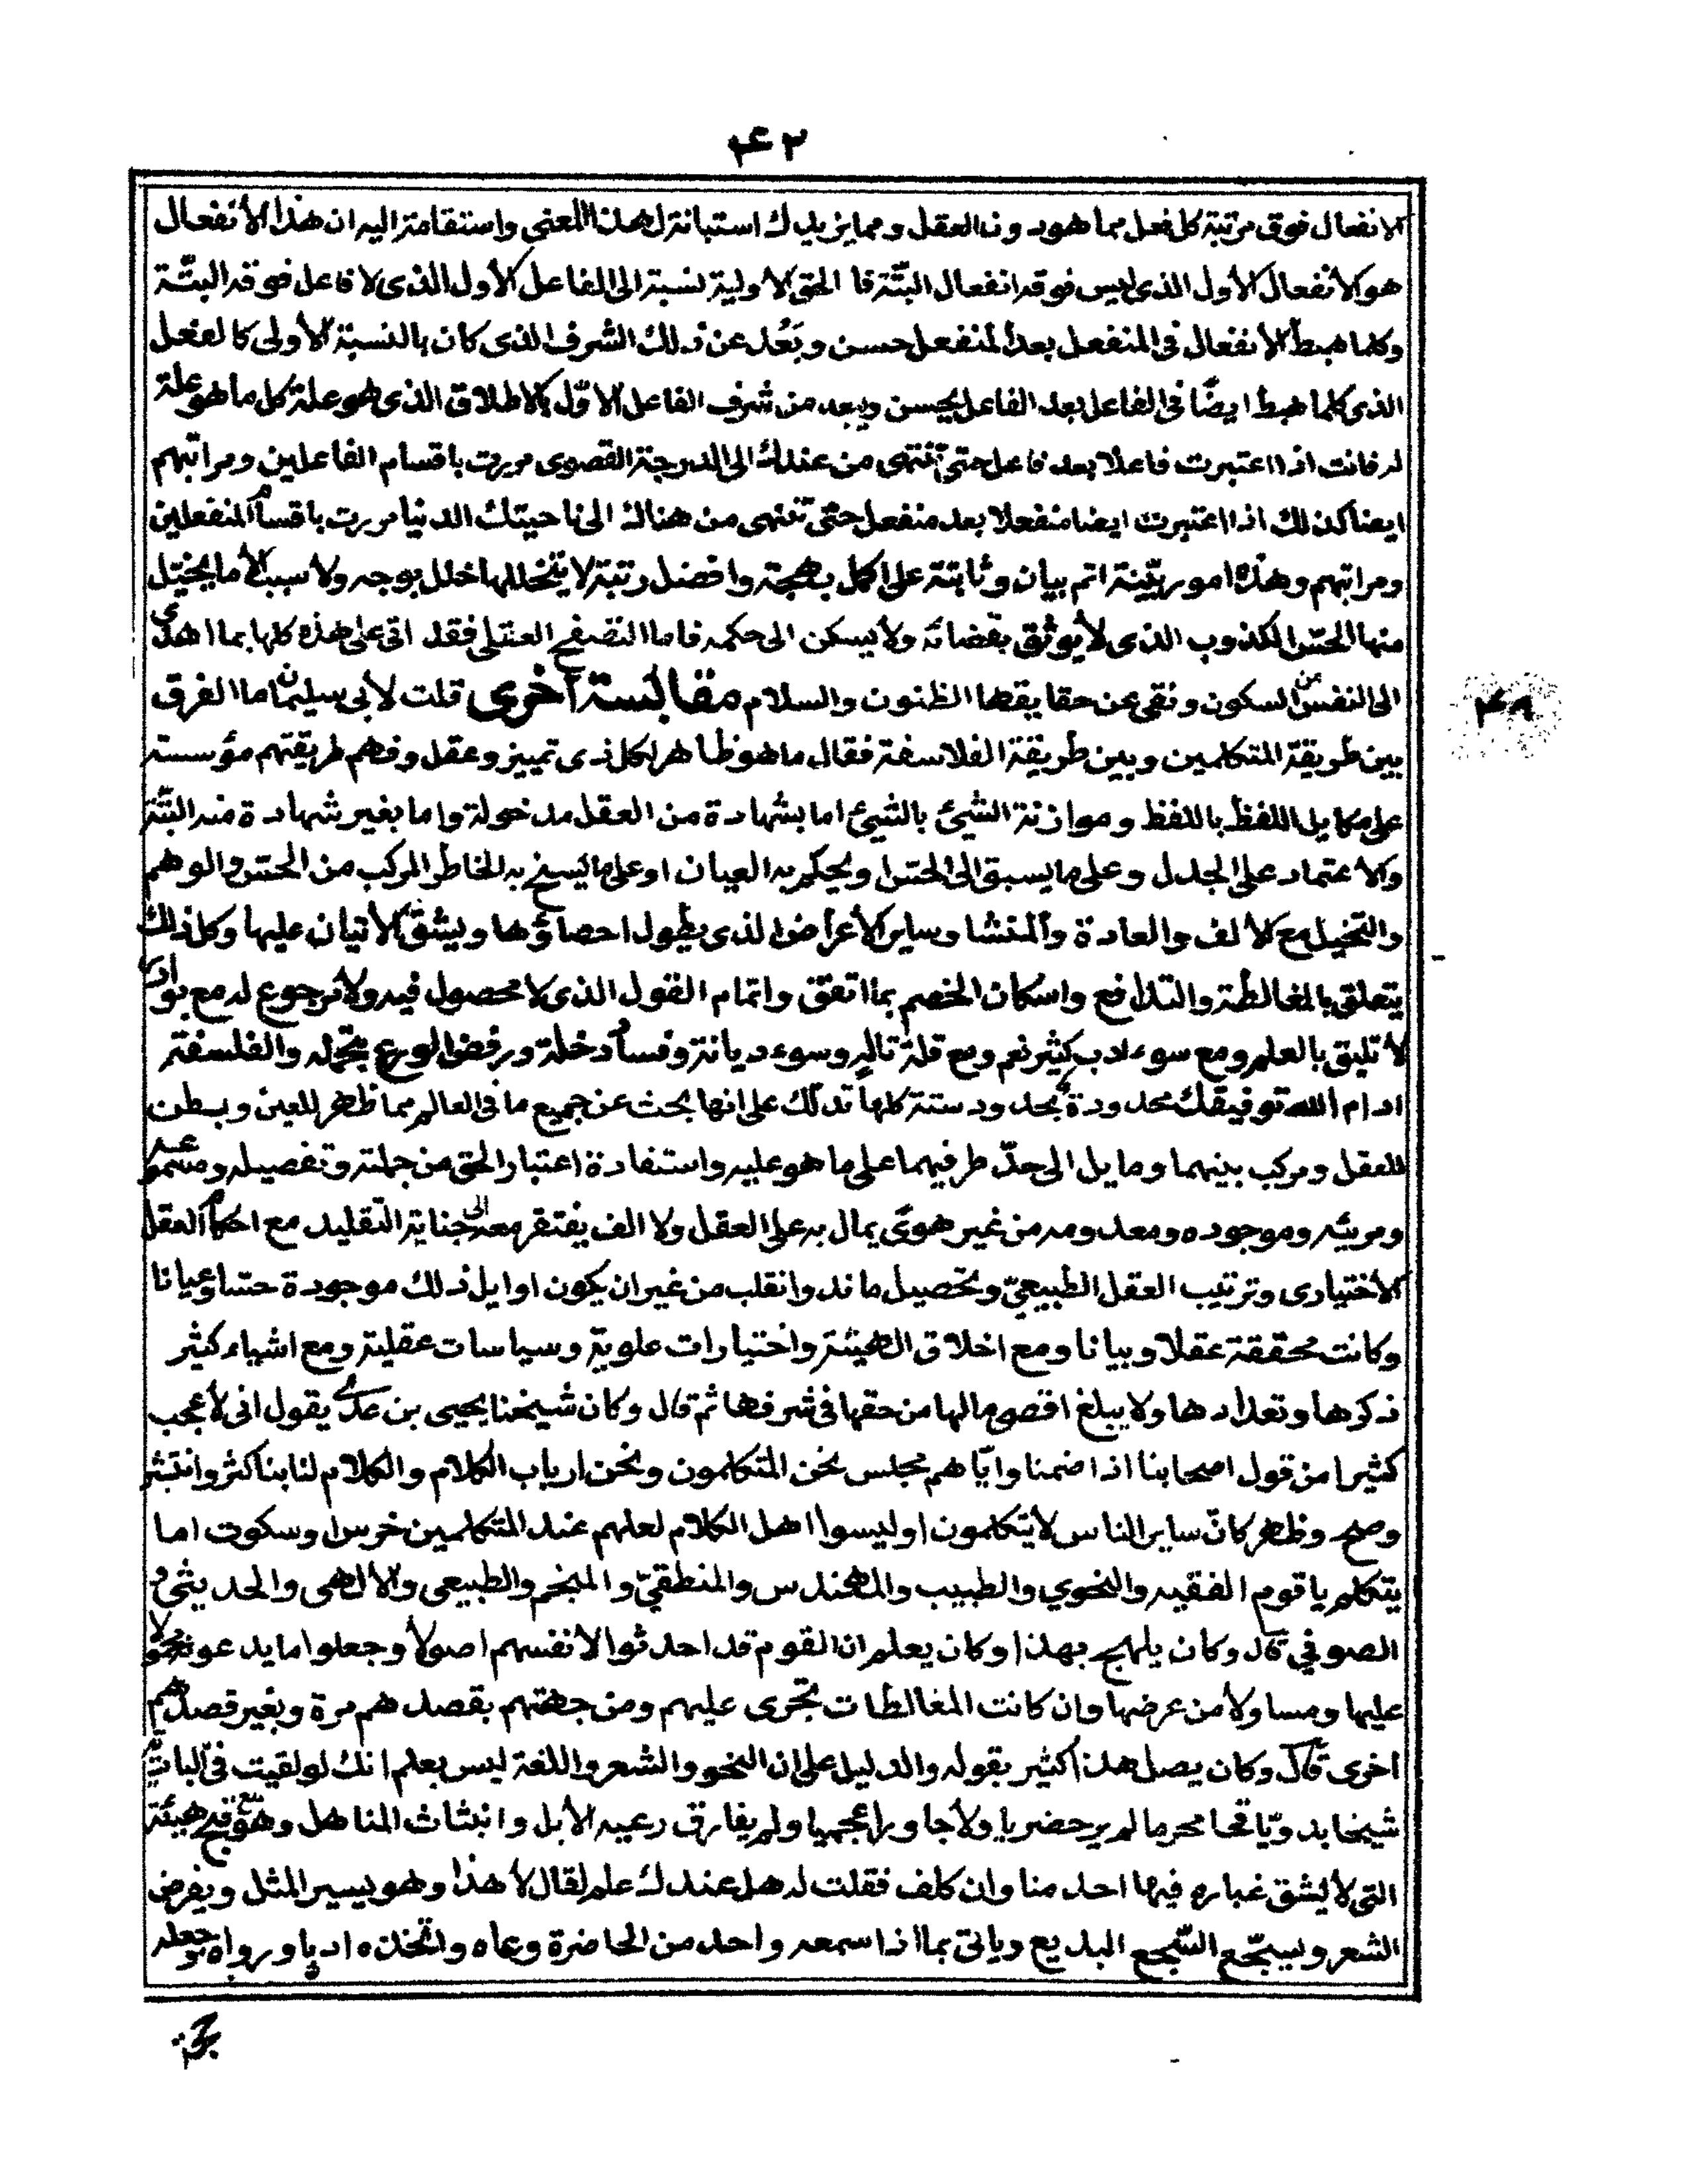 ٤٢
الانفعال فوق مرتبة كل فعل مما هو دون العقل ومما يزيدك استبانة لهذا المعنى واستقامة اليه ان هذا الانفعال
هو الانفعال الأول الذى ليس فوقه انفعال البتّة فا الحق الاولية نسبة الى الفاعل الأول الذى لا فاعل فوقه البتّة
وكلما هبط الانفعال فى المنفعل بعد المنفعل حسن وبَعُد عن ذلك الشرف الذى كان بالنسبة الأولى كالفعل
الذى كلما هبط ايضًا فى الفاعل بعد الفاعل يحسن ويبعد من شرف الفاعل الاوّل بالاطلاق الذى هو علة كل ما هو علة
له فانت اذا اعتبرت فاعلا بعد فاعل حتى تنتهى من عندك الى الدرجة القصوى مررت باقسام الفاعلين ومراتبهم
ايضا كذلك اذا اعتبرت ايضا منفعلا بعد منفعل حتى تنتهى من هناك الى ناحيتك الدنيا مررت باقسام المنفعلين
ومراتبهم وهذه امور بيّنة اتم بيان وثابتة على اكمل بهجة وافضل رتبة لا يتخللها خلل بوجه ولا سبب الا ما يخيّل
منها الحسّ الكذوب الذى لا يوثق بقضائه ولا يسكن الى حكمه فاما التصفح العقلى فقد اتى على هذه كلها بما اهدى
الى النفس من السكون ونقى عن حقايقها الظنون والسلام مقابسة اخرى قلت لأبى سليمان اما الفرق
بين طريقة المتكلمين وبين طريقة الفلاسفة فقال ما هو ظاهر لكل ذى تمييز وعقل وفهم طريقتهم مؤسسة
على مكايل اللفظ باللفظ وموازنة الشيئ بالشيئ اما بشهادة من العقل مدخولة واما بغير شهادة منه البتّة
والاعتماد على الجدل وعلى ما يسبق الى الحسّ او يحكم به العيان او على ما يسنح به الخاطر المركب من الحسّ والوهم
والتخيل مع الالف والعادة والمنشا وساير الأعراض الذى يطول احصاؤها ويشق الاتيان عليها وكل ذلك
يتعلق بالمغالطة والتدافع واسكان الخصم بما اتفق واتمام القول الذى لا محصول فيه ولا مرجوع له مع بوادر
لا تليق بالعلم ومع سوء ادب كثير نعم ومع قلة تاله وسوء ديانة وفساد دخلة ورفض الورع بجمله والفلسفة
ادام الله توفيقك محدودة بحدود ستة كلها تدلك على انها بحث عن جميع ما فى العالم مما ظهر للعين وبطن
للعقل ومركب بينهما ومايل الى حدّ طرفيهما على ما هو عليه واستفادة اعتبار الحق من جملته وتفصيله ومسموعه
ومريئه وموجوده ومعدومه من غير هوًى يمال به على العقل ولا الف يفتقر معه الى جناية التقليد مع احكام العقل
الاختيارى وترتيب العقل الطبيعىّ وتحصيل ما ند وانقلب من غير ان يكون اوايل ذلك موجودة حسّا وعيانا
وكانت محققة عقلا وبيانا ومع اخلاق الهيّة واختيارات علوية وسياسات عقلية ومع اشياء كثير
ذكرها وتعدادها ولا يبلغ اقصى مالها من حقها فى شرفها ثم قال وكان شيخنا يحيى بن عدى يقول انى لأعجب
كثيرا من قول اصحابنا اذا ضمنا وايّاهم مجلس نحن المتكلمون ونحن ارباب الكلام والكلام لنا بنا كثر وانتشر
وصح وظهر كانّ ساير الناس لا يتكلمون او ليسوا اهل الكلام لعلهم عند المتكلمين خرس او سكوت اما
يتكلم يا قوم الفقيه والنحوي والطبيب والمهندس والمنطقىّ والمنجم والطبيعى والالهى والحديثى و
الصوفي قال وكان يلهج بهذا وكان يعلم ان القوم قد احدثوا لانفسهم اصولا وجعلوا ما يدعونه محمولا
عليها ومساولا من عرضها وان كانت المغالطات تجرى عليهم ومن جهتهم بقصدهم مرة وبغير قصدهم
اخرى قال وكان يصل هذا كثير بقوله والدليل على ان النحو والشعر واللغة ليس بعلم انك لو لقيت فى البادية
شيخا بدويّا قحا محرما لم ير حضريا ولا جاور اعجميا ولم يفارق رعيه الابل وانبثاث المناهل وهو مع قبح هيئة
التى لا يشق غباره فيها احد منا وان كلف فقلت له هل عندك علم لقال لا هذا وهو يسير المثل ويقرض
الشعر ويسجّع السّجع البديع وياتى بما اذا سمعه واحد من الحاضرة وعاه واتخذه ادبا ورواه وجعله